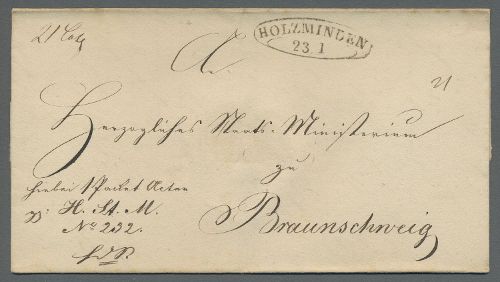 21 Loth
HOLZMINDEN
23 1
An
21
Herzogliches Staats-Ministerium
zu
hierbei 1 Packet Acten
H. St. M.
No 232.
Braunschweig